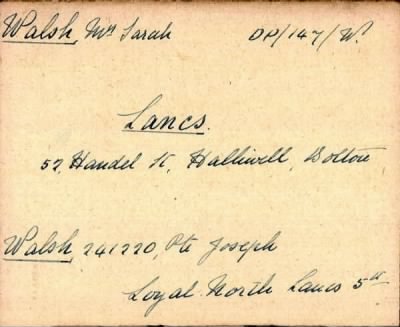 Walsh, Mrs Sarah DP/147/W.
Lancs.
57, Handel St, Halliwell, Bolton
Walsh, 241220, Pte Joseph
Loyal North Lancs 5th